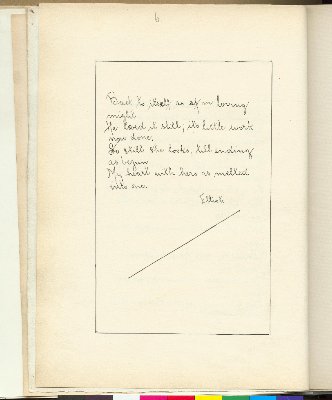 6
Back to itself as if in loving
might
He loved it still, its little work
now done.
So still she looks, till ending
as begun
My heart with hers is melted
into one.